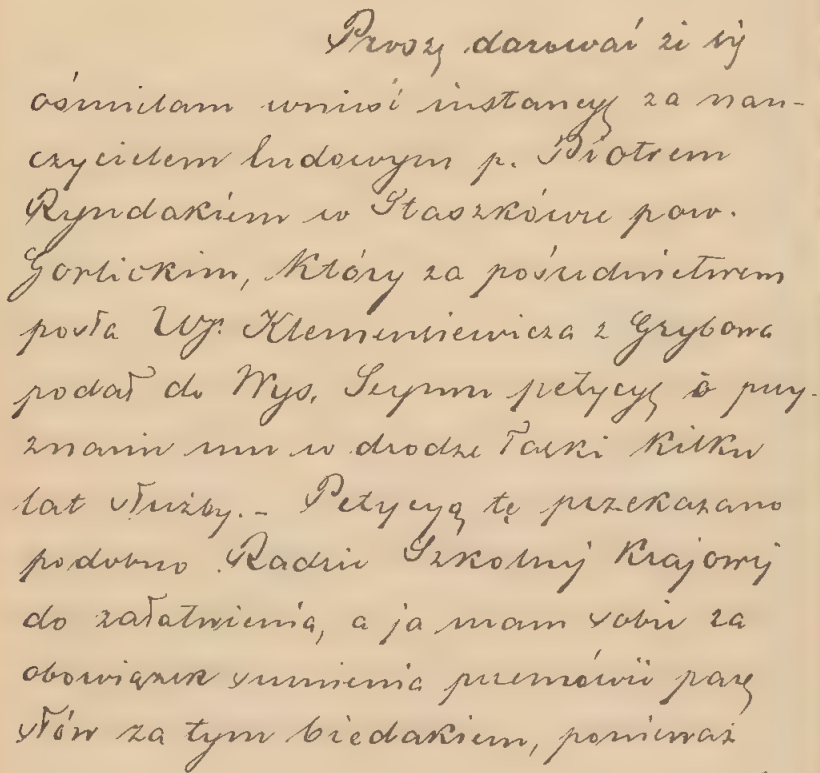 Proszę darować że się
ośmielam wnieść instancyę za nau-
czycielem ludowym p. Piotrem
Ryndakiem w Staszkówce pow.
Gorlickim, który za pośrednictwem
posła Wgo. Klemensiewicza z Grybowa
podał do Wys. Seymu petycyę o przy-
znanie mu w drodze łaski kilku
lat służby. - Petycyą tę przekazano
podobno Radzie Szkolnej Krajowej
do załatwienia, a ja mam sobie za
obowiązek sumienia przemówić parę
słów za tym biedakiem, ponieważ